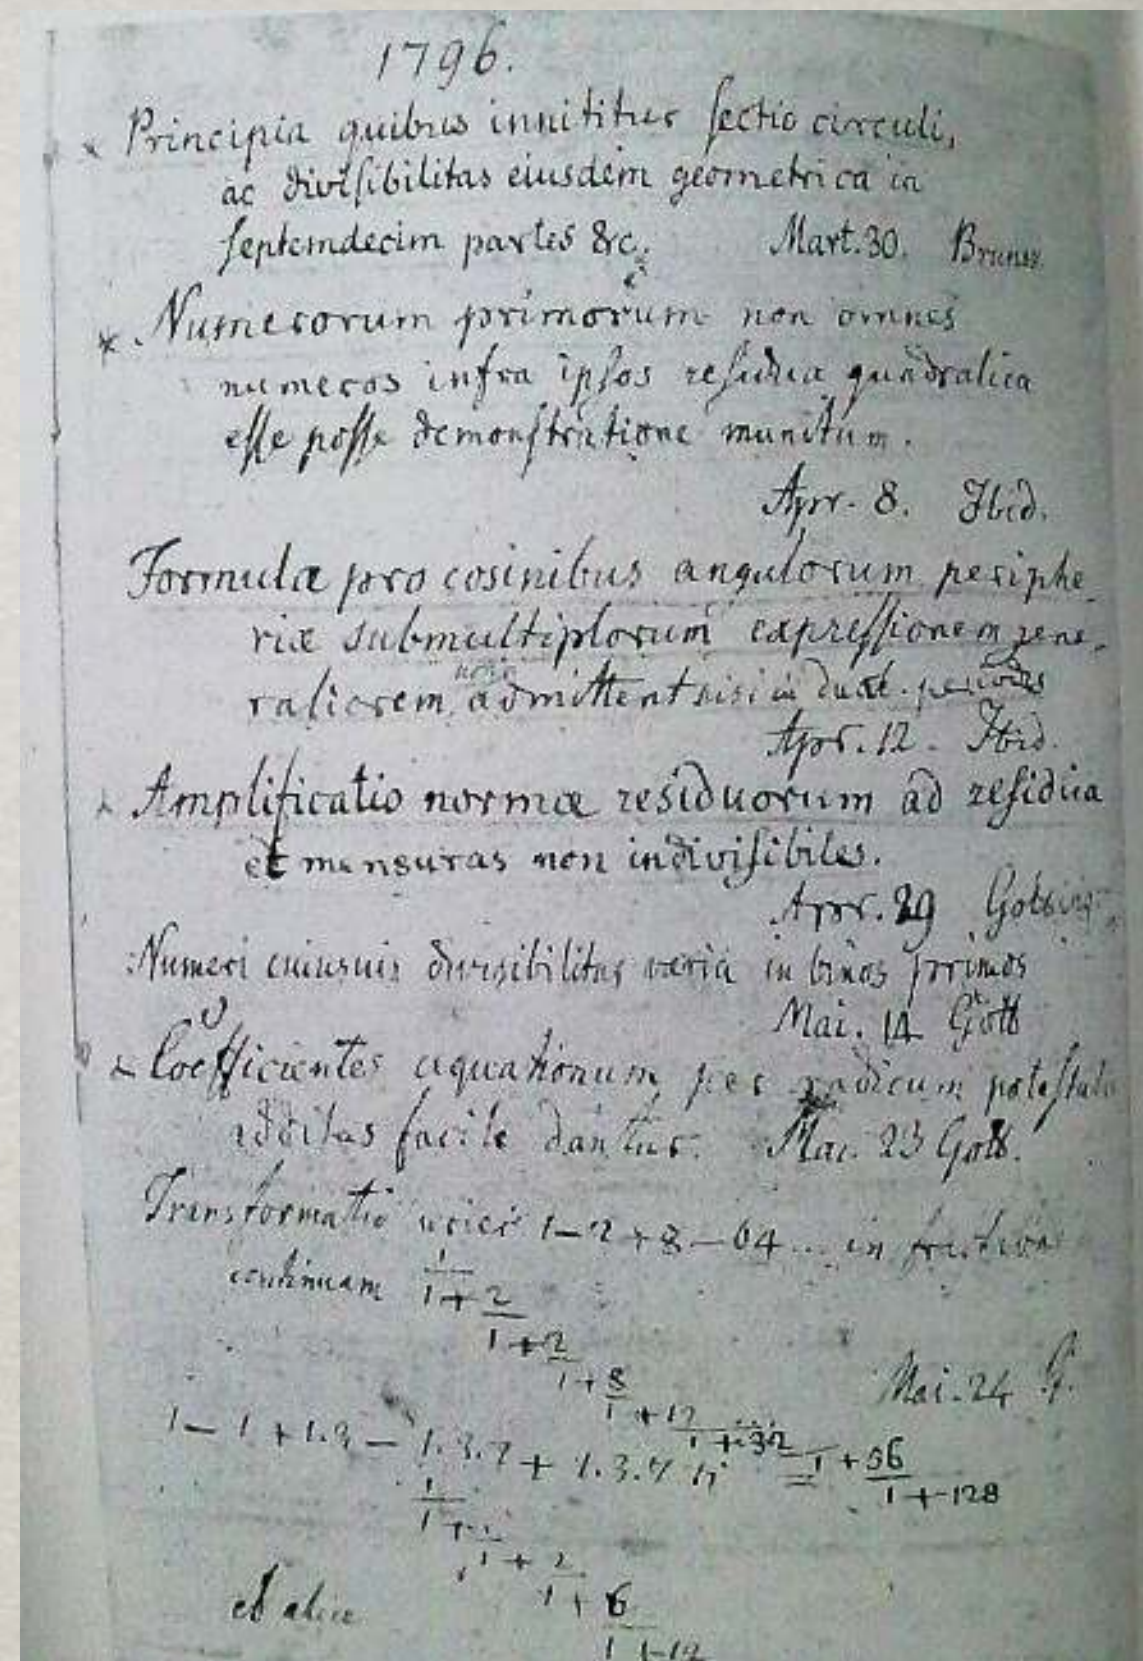 1796.
× Principia quibus innititur sectio circuli,
ac divisibilitas eiusdem geometrica in
septemdecim partes &c. Mart. 30. Brunsv.
* Numerorum primorum non omnes
numeros infra ipsos residua quadratica
esse posse demonstratione munitum.
Apr. 8. Ibid.
Formulæ pro cosinibus angulorum periphe-
riæ submultiplorum expressionem gene-
raliorem non admittent nisi in duab. periodis
Apr. 12. Ibid.
× Amplificatio normæ residuorum ad residua
et mensuras non indivisibiles.
Apr. 29 Gotting.
Numeri cuiusvis divisibilitas varia in binos primos
Mai. 14 Gott
× Coefficientes æquationum per radicum potestates
additas facile dantur. Mai. 23 Gott.
Transformatio seriei 1 – 2 + 8 – 64... in fractionem
continuam 1
1 + 2
1 + 2
1 + 8
Mai. 24 G.
1 + 12
1 + 32
1 – 1 + 1.3 – 1.3.7 + 1.3.7.15 = 1 + 56
1 + 128
1
1 + 1
1 + 2
1 + 6
et aliæ
1 + 12